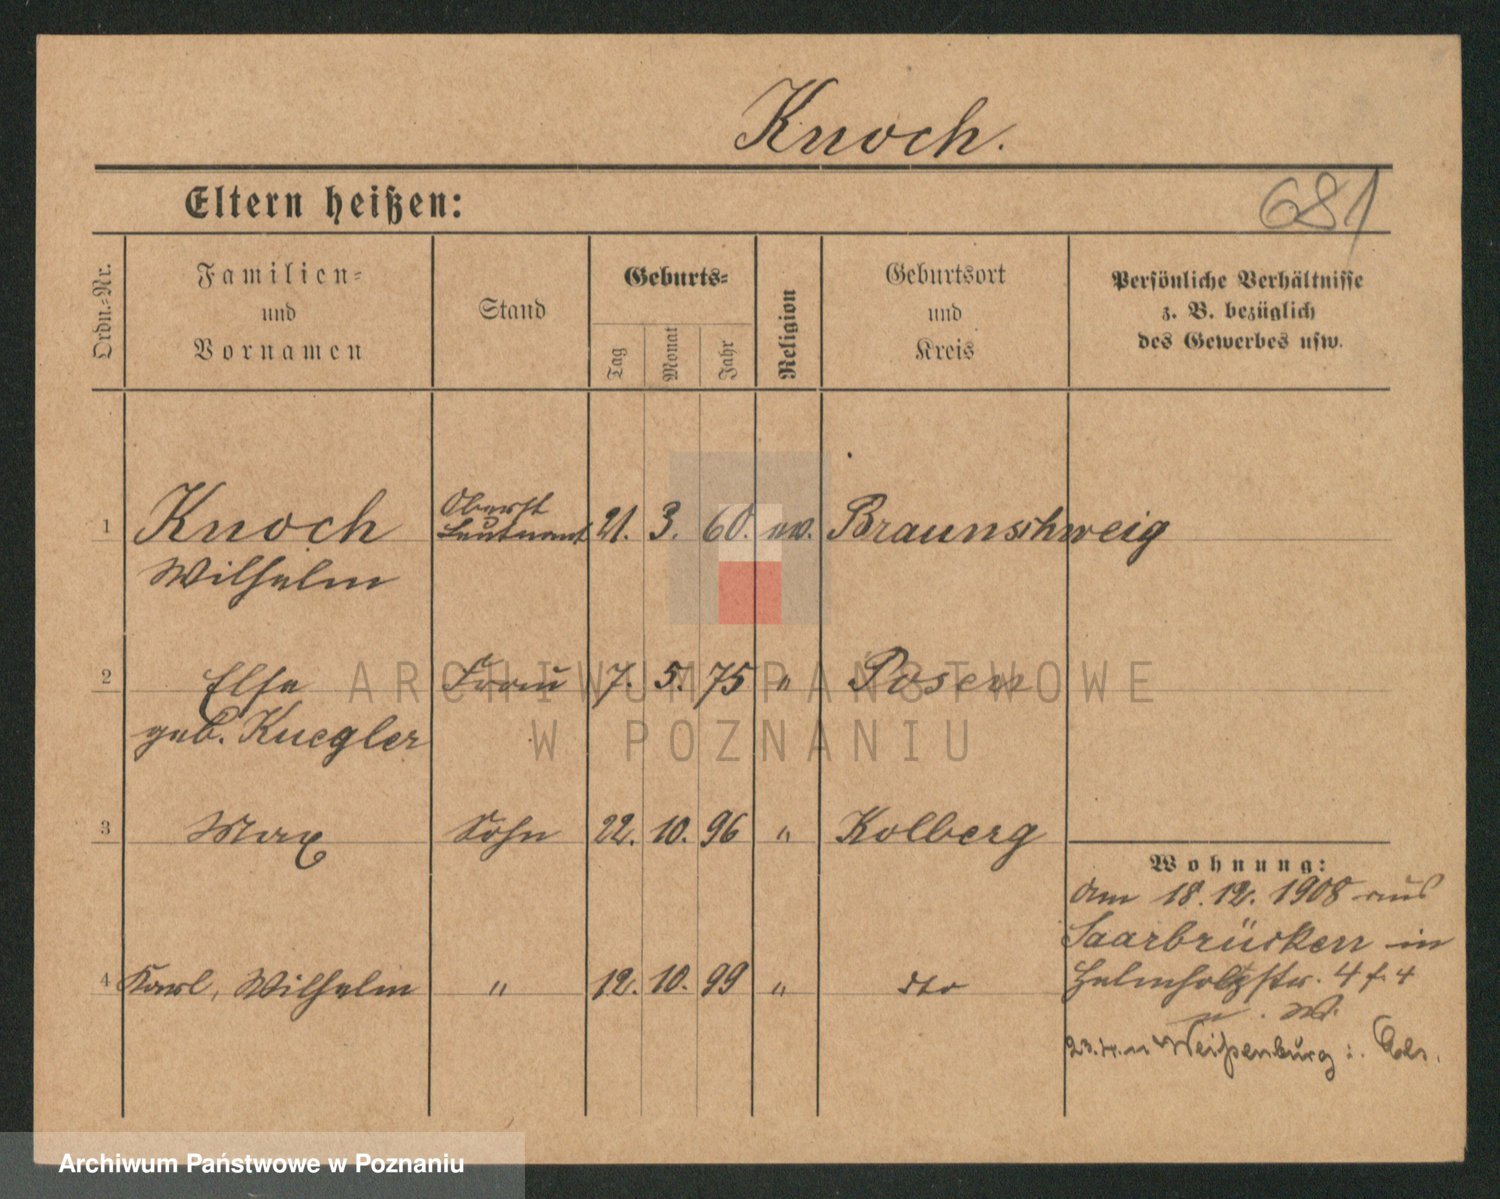 Knoch.
Eltern heißen:
681
Ordn.-Nr.
Familien-
und
Vornamen
Stand
Geburts-
Tag
Monat
Jahr
Religion
Geburtsort
und
Kreis
Persönliche Verhältnisse
z. B. bezüglich
des Gewerbes usw.
1 Knoch Oberst 21. 3. 60. ev. Braunschweig
Wilhelm Leutnant
2 Else Frau 7. 5. 75 " Posen
geb. Kuegler
3 Max Sohn 22. 10. 96 " Kolberg
4 Karl, Wilhelm " 12. 10. 99 " dto
Wohnung:
Am 18.12.1908 aus
Saarbrücken in
Helmholtzstr. 4
n. Weißenburg i. Els.
ARCHIWUM PAŃSTWOWE
W POZNANIU
Archiwum Państwowe w Poznaniu